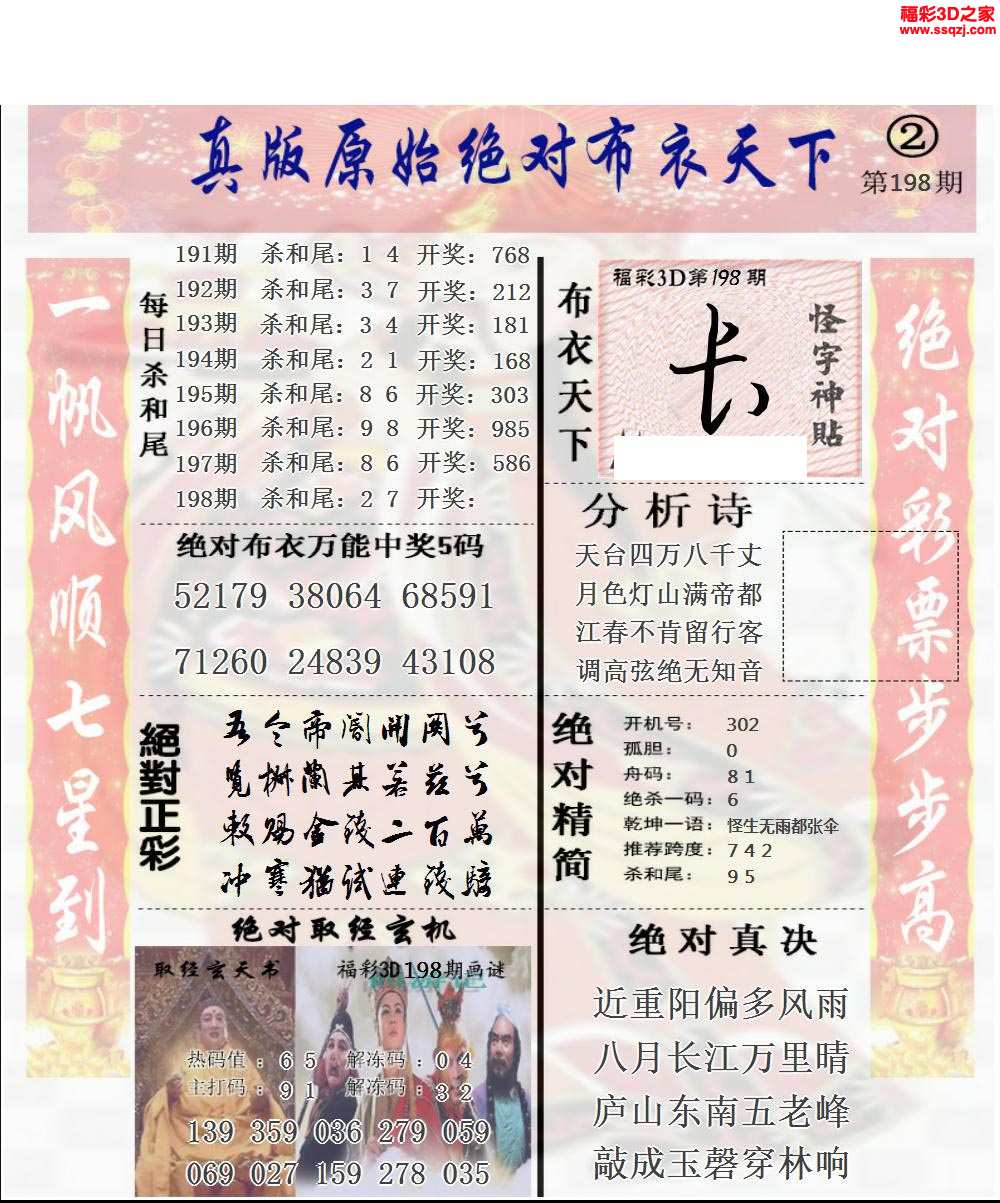 福彩3D之家
www.ssqzj.com
真版原始绝对布衣天下
②
第198期
一帆风顺七星到
每日杀和尾
191期 杀和尾：1 4 开奖：768
192期 杀和尾：3 7 开奖：212
193期 杀和尾：3 4 开奖：181
194期 杀和尾：2 1 开奖：168
195期 杀和尾：8 6 开奖：303
196期 杀和尾：9 8 开奖：985
197期 杀和尾：8 6 开奖：586
198期 杀和尾：2 7 开奖：
绝对布衣万能中奖5码
52179 38064 68591
71260 24839 43108
絕對正彩
吾令帝阍開関兮
覽椒蘭其若茲兮
敕賜金錢二百萬
冲寒猶試連錢驄
绝对取经玄机
取经玄天书
福彩3D198期画谜
热码值：6 5 解冻码：0 4
主打码：9 1 解冻码：3 2
139 359 036 279 059
069 027 159 278 035
布衣天下
福彩3D第198期
怪字神貼
分析诗
天台四万八千丈
月色灯山满帝都
江春不肯留行客
调高弦绝无知音
绝对精简
开机号：302
孤胆：0
舟码：8 1
绝杀一码：6
乾坤一语：怪生无雨都张伞
推荐跨度：7 4 2
杀和尾：9 5
绝对真决
近重阳偏多风雨
八月长江万里晴
庐山东南五老峰
敲成玉磬穿林响
绝对彩票步步高